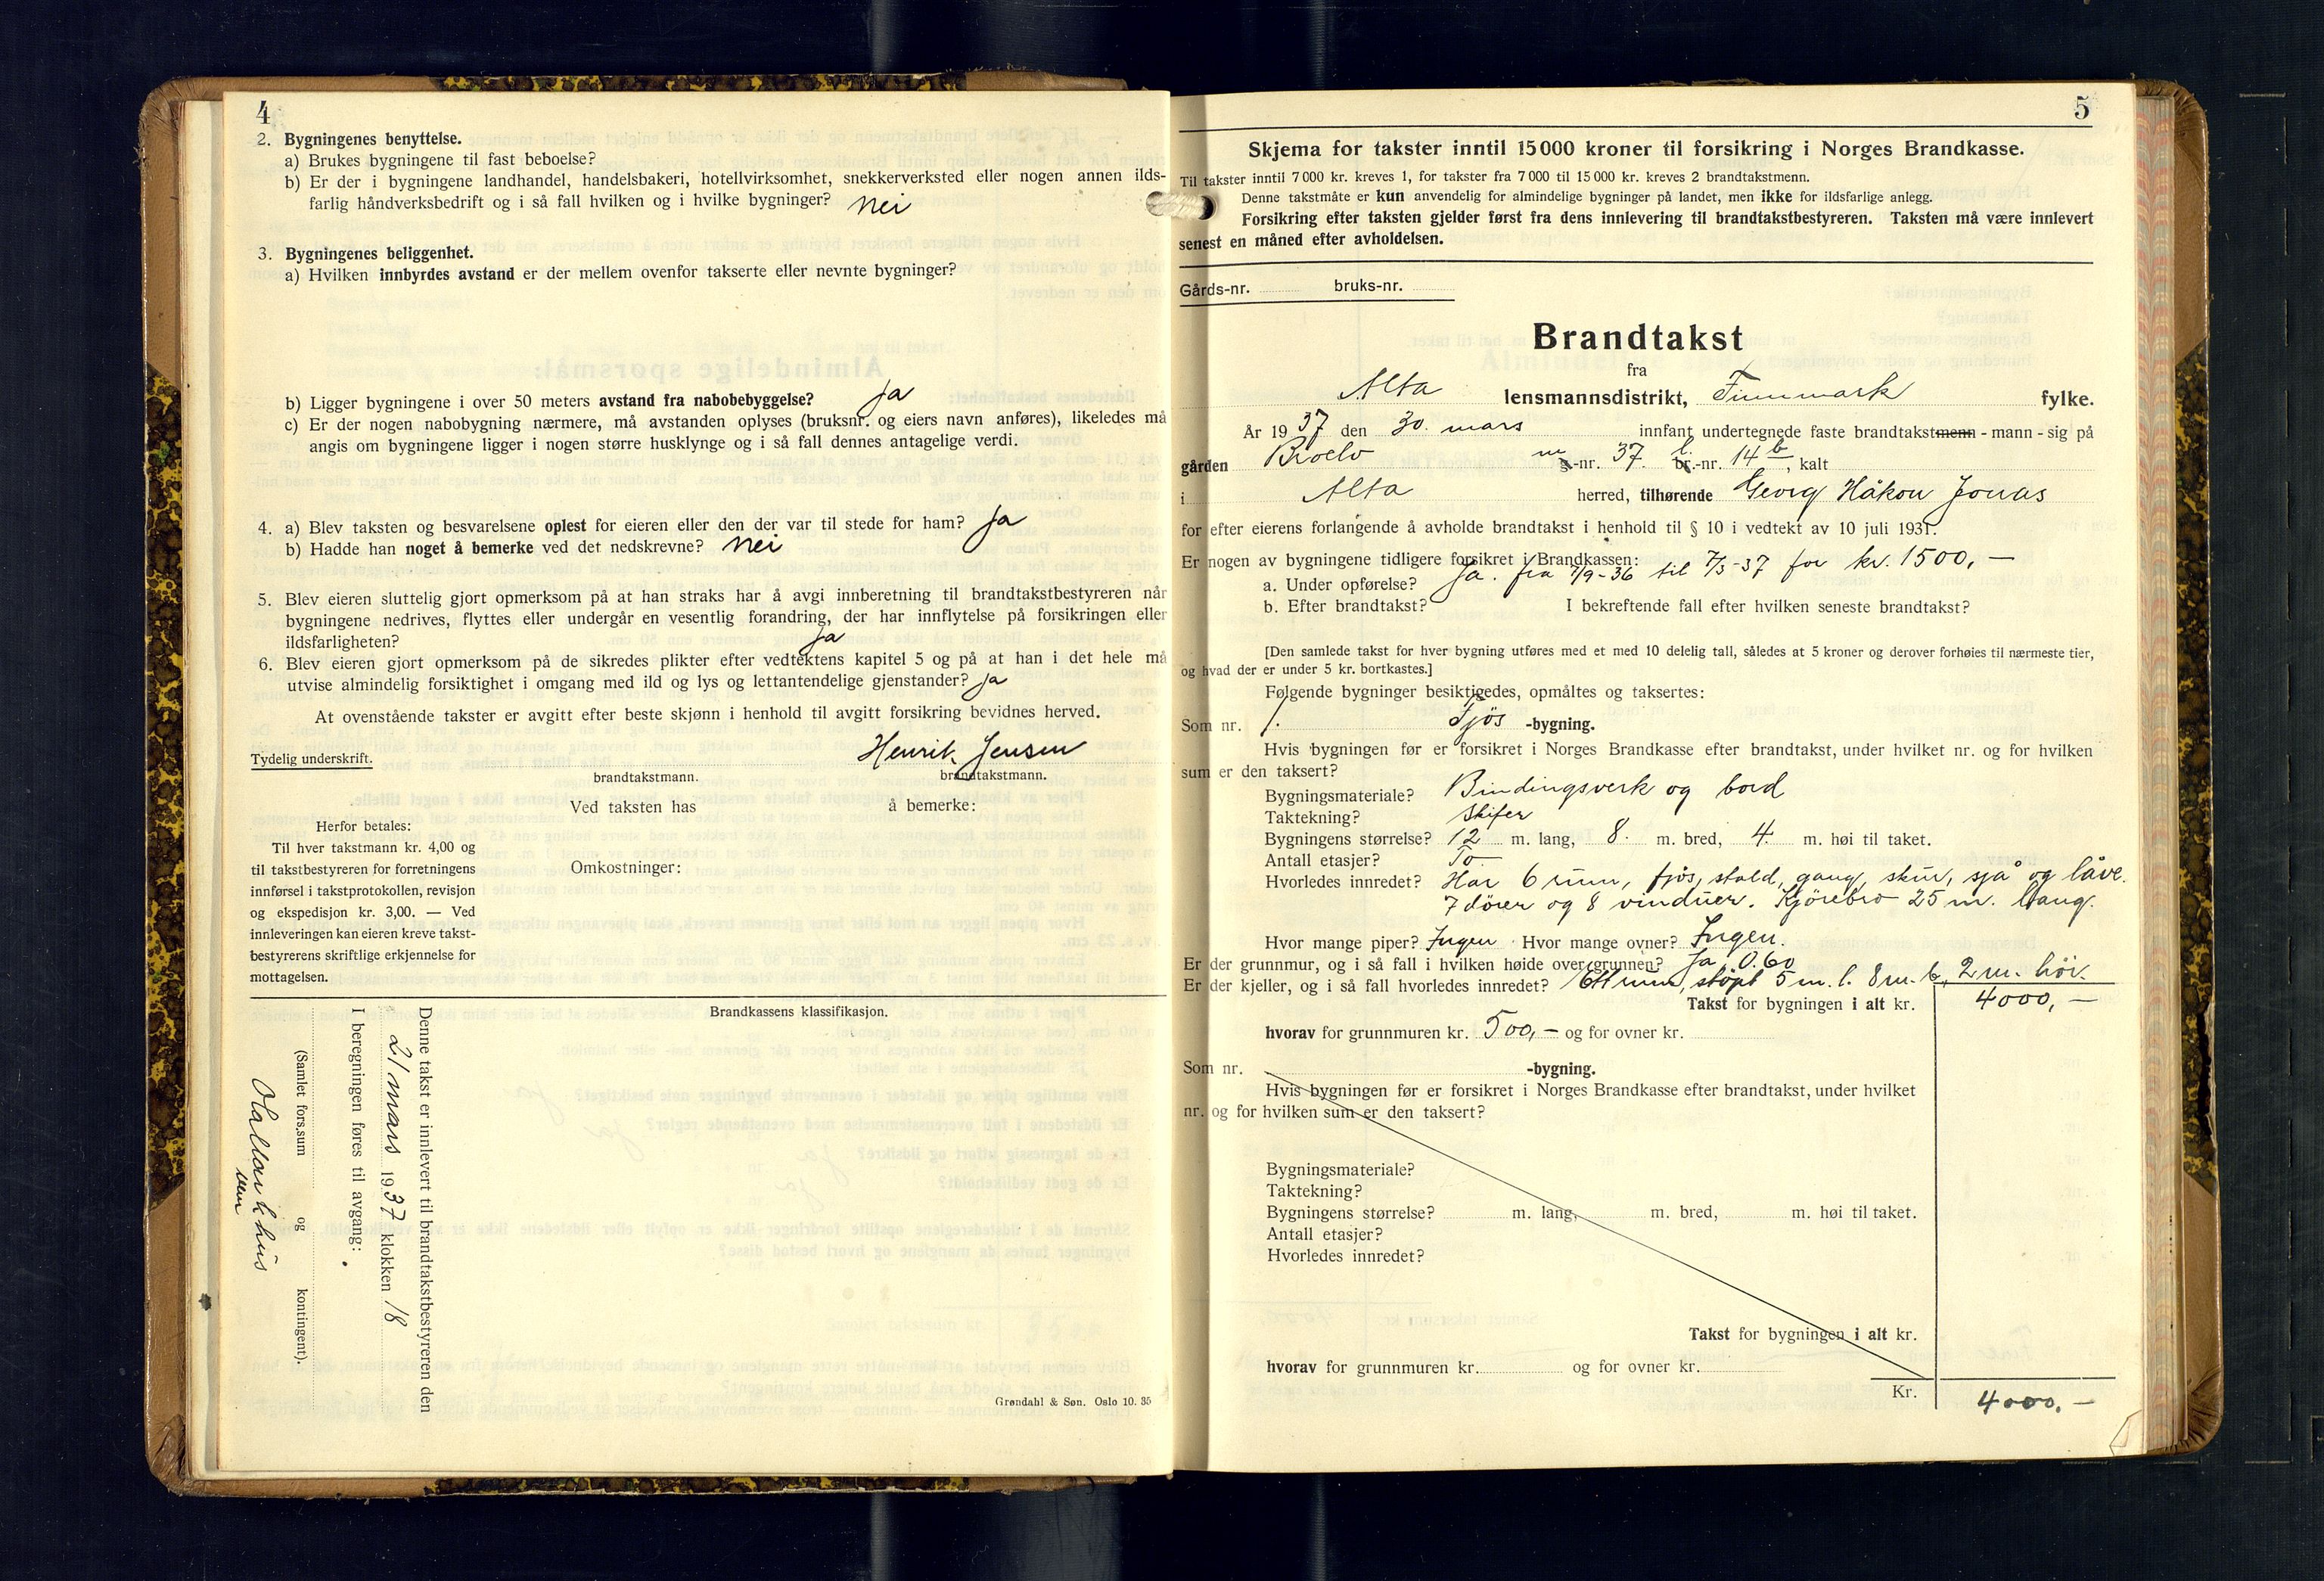 4
2. Bygningenes benyttelse.
a) Brukes bygningene til fast beboelse?
b) Er der i bygningene landhandel, handelsbakeri, hotellvirksomhet, snekkerverksted eller nogen annen ilds-
farlig håndverksbedrift og i så fall hvilken og i hvilke bygninger? Nei
3. Bygningenes beliggenhet.
a) Hvilken innbyrdes avstand er der mellem ovenfor takserte eller nevnte bygninger?
b) Ligger bygningene i over 50 meters avstand fra nabobebyggelse? Ja
c) Er der nogen nabobygning nærmere, må avstanden oplyses (bruksnr. og eiers navn anføres), likeledes må
angis om bygningene ligger i nogen større husklynge og i så fall dennes antagelige verdi.
4. a) Blev taksten og besvarelsene oplest for eieren eller den der var til stede for ham? Ja
b) Hadde han noget å bemerke ved det nedskrevne? Nei
5. Blev eieren sluttelig gjort opmerksom på at han straks har å avgi innberetning til brandtakstbestyreren når
bygningene nedrives, flyttes eller undergår en vesentlig forandring, der har innflytelse på forsikringen eller
ildsfarligheten? Ja
6. Blev eieren gjort opmerksom på de sikredes plikter efter vedtektens kapitel 5 og på at han i det hele må
utvise almindelig forsiktighet i omgang med ild og lys og lettantendelige gjenstander? Ja
At ovenstående takster er avgitt efter beste skjønn i henhold til avgitt forsikring bevidnes herved.
Tydelig underskrift. Henrik Jensen
brandtakstmann. brandtakstmann.
Ved taksten has å bemerke:
Herfor betales:
Til hver takstmann kr. 4,00 og
til takstbestyreren for forretningens
innførsel i takstprotokollen, revisjon
og ekspedisjon kr. 3,00. — Ved
innleveringen kan eieren kreve takst-
bestyrerens skriftlige erkjennelse for
mottagelsen.
Omkostninger:
Brandkassens klassifikasjon.
Denne takst er innlevert til brandtakstbestyreren den
21 mars 1937 klokken 18
I beregningen føres til avgang:
(Samlet fors.sum og kontingent).
Grøndahl & Søn. Oslo 10. 35
5
Skjema for takster inntil 15000 kroner til forsikring i Norges Brandkasse.
Til takster inntil 7000 kr. kreves 1, for takster fra 7000 til 15000 kr. kreves 2 brandtakstmenn.
Denne takstmåte er kun anvendelig for almindelige bygninger på landet, men ikke for ildsfarlige anlegg.
Forsikring efter taksten gjelder først fra dens innlevering til brandtakstbestyreren. Taksten må være innlevert
senest en måned efter avholdelsen.
Gårds-nr. bruks-nr.
Brandtakst
fra
Alta lensmannsdistrikt, Finnmark fylke.
År 1937 den 30. mars innfant undertegnede faste brandtakstmenn - mann - sig på
gården Broelv m-nr. 37. l.-nr. 14b, kalt
i Alta herred, tilhørende Georg Håkon Jonas
for efter eierens forlangende å avholde brandtakst i henhold til § 10 i vedtekt av 10 juli 1931.
Er nogen av bygningene tidligere forsikret i Brandkassen:
a. Under opførelse? Ja. fra 7/9-36 til 7/3-37 for kr. 1500,-
b. Efter brandtakst? I bekreftende fall efter hvilken seneste brandtakst?
[Den samlede takst for hver bygning utføres med et med 10 delelig tall, således at 5 kroner og derover forhøies til nærmeste tier,
og hvad der er under 5 kr. bortkastes.]
Følgende bygninger besiktigedes, opmåltes og taksertes:
Som nr. 1. Fjös -bygning.
Hvis bygningen før er forsikret i Norges Brandkasse efter brandtakst, under hvilket nr. og for hvilken
sum er den taksert?
Bygningsmateriale? Bindingsverk og bord
Taktekning? Skifer
Bygningens størrelse? 12 m. lang, 8. m. bred, 4. m. høi til taket.
Antall etasjer? To
Hvorledes innredet? Har 6 rum, fjös, stald, gang, skur, sjå og låve.
7 dörer og 8 vinduer. Kjörebro 25 m. lang.
Hvor mange piper? Ingen Hvor mange ovner? Ingen.
Er der grunnmur, og i så fall i hvilken høide over grunnen? Ja, 0.60
Er der kjeller, og i så fall hvorledes innredet? Ett rum, støpt 5 m. l. 8 m. b. 2 m. høi.
Takst for bygningen i alt kr. 4000,-
hvorav for grunnmuren kr. 500,- og for ovner kr.
Som nr. -bygning.
Hvis bygningen før er forsikret i Norges Brandkasse efter brandtakst, under hvilket
nr. og for hvilken sum er den taksert?
Bygningsmateriale?
Taktekning?
Bygningens størrelse? m. lang, m. bred, m. høi til taket.
Antall etasjer?
Hvorledes innredet?
Takst for bygningen i alt kr.
hvorav for grunnmuren kr. og for ovner kr.
Kr. 4000.-